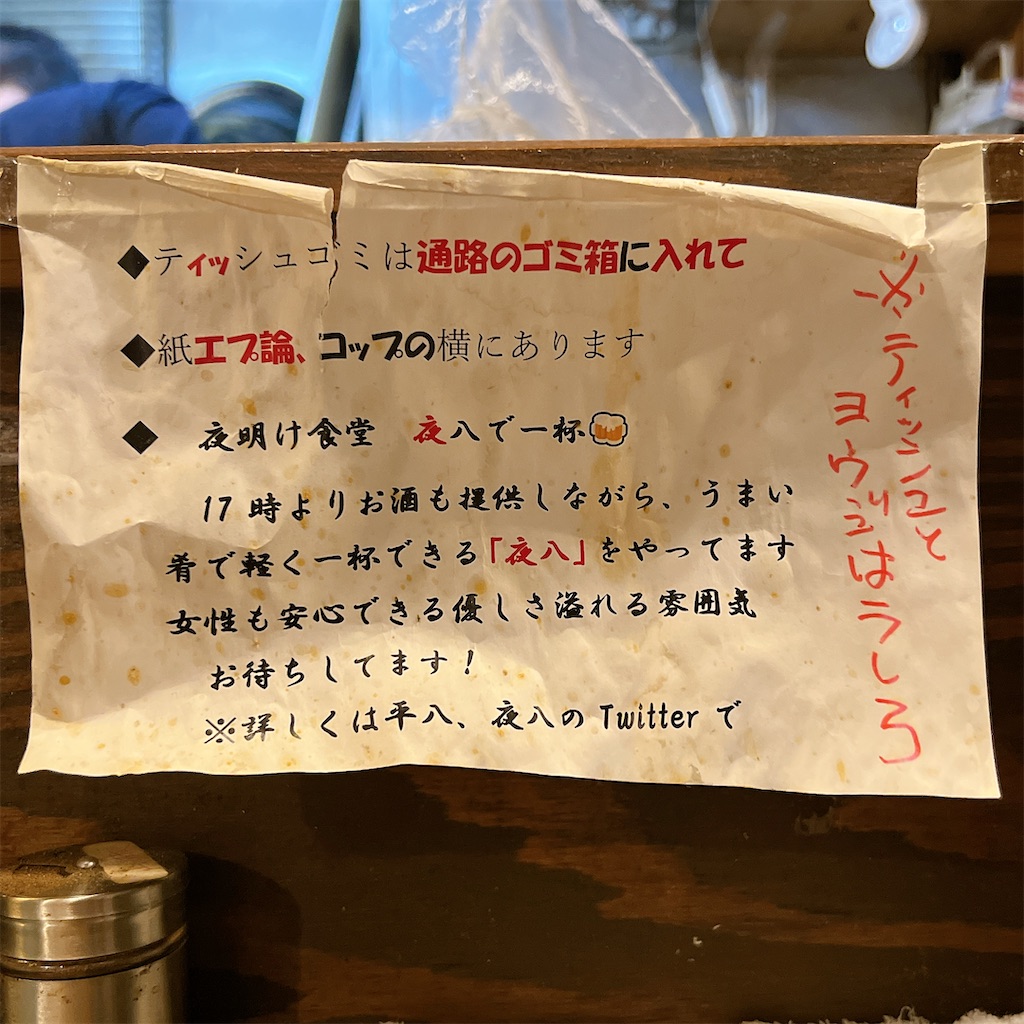 ◆ティッシュゴミは通路のゴミ箱に入れて
◆紙エプ論、コップの横にあります
◆ 夜明け食堂 夜八で一杯🍻
17時よりお酒も提供しながら、うまい
肴で軽く一杯できる「夜八」をやってます
女性も安心できる優しさ溢れる雰囲気
お待ちしてます!
※詳しくは平八、夜八のTwitterで
※ティッシュと
ヨウジはうしろ